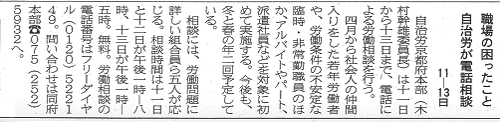 職場の困ったこと
自治労が電話相談
11―13日
自治労京都府本部（木
村幹雄委員長）は十一日
から十三日まで、電話に
よる労働相談を行う。
四月から社会人の仲間
入りをした若年労働者
や、労働条件の不安定な
臨時・非常勤職員のほ
か、アルバイトやパート、
派遣社員などを対象に初
めて実施する。今後も、
冬と春の年二回予定して
いる。
相談には、労働問題に
詳しい組合員ら五人が応
じる。相談時間は十一日
と十二日が午後一時―八
時、十三日が午後一時―
五時。無料。労働相談の
電話番号はフリーダイヤ
ル（０１２０）５２２１
４９。問い合わせは同府
本部☎０７５（２５２）
５９３２へ。